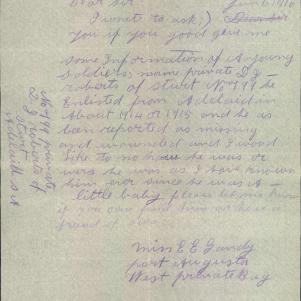 Dear Sir
I wonet to ask
you if you good give me
some Information of A young
Soldiers, name private D J
roberts of Sturt No 799 he
Enlisted from Adelaid in
About 1914 or 1915 and he as
been reported as missing
and wounded and I wood
like to no how he was or
were he was as I have known
him ever since he was A
little baby please let me know
if you can find him as he is a
friend of
Miss E E Gandy
port Augusta
West private Bag
No 799 private
D J roberts of
Sturt